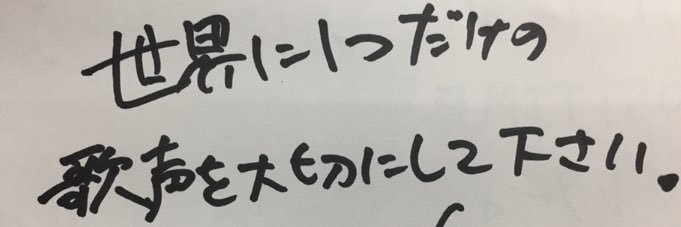 世界に1つだけの
歌声を大切にして下さい。